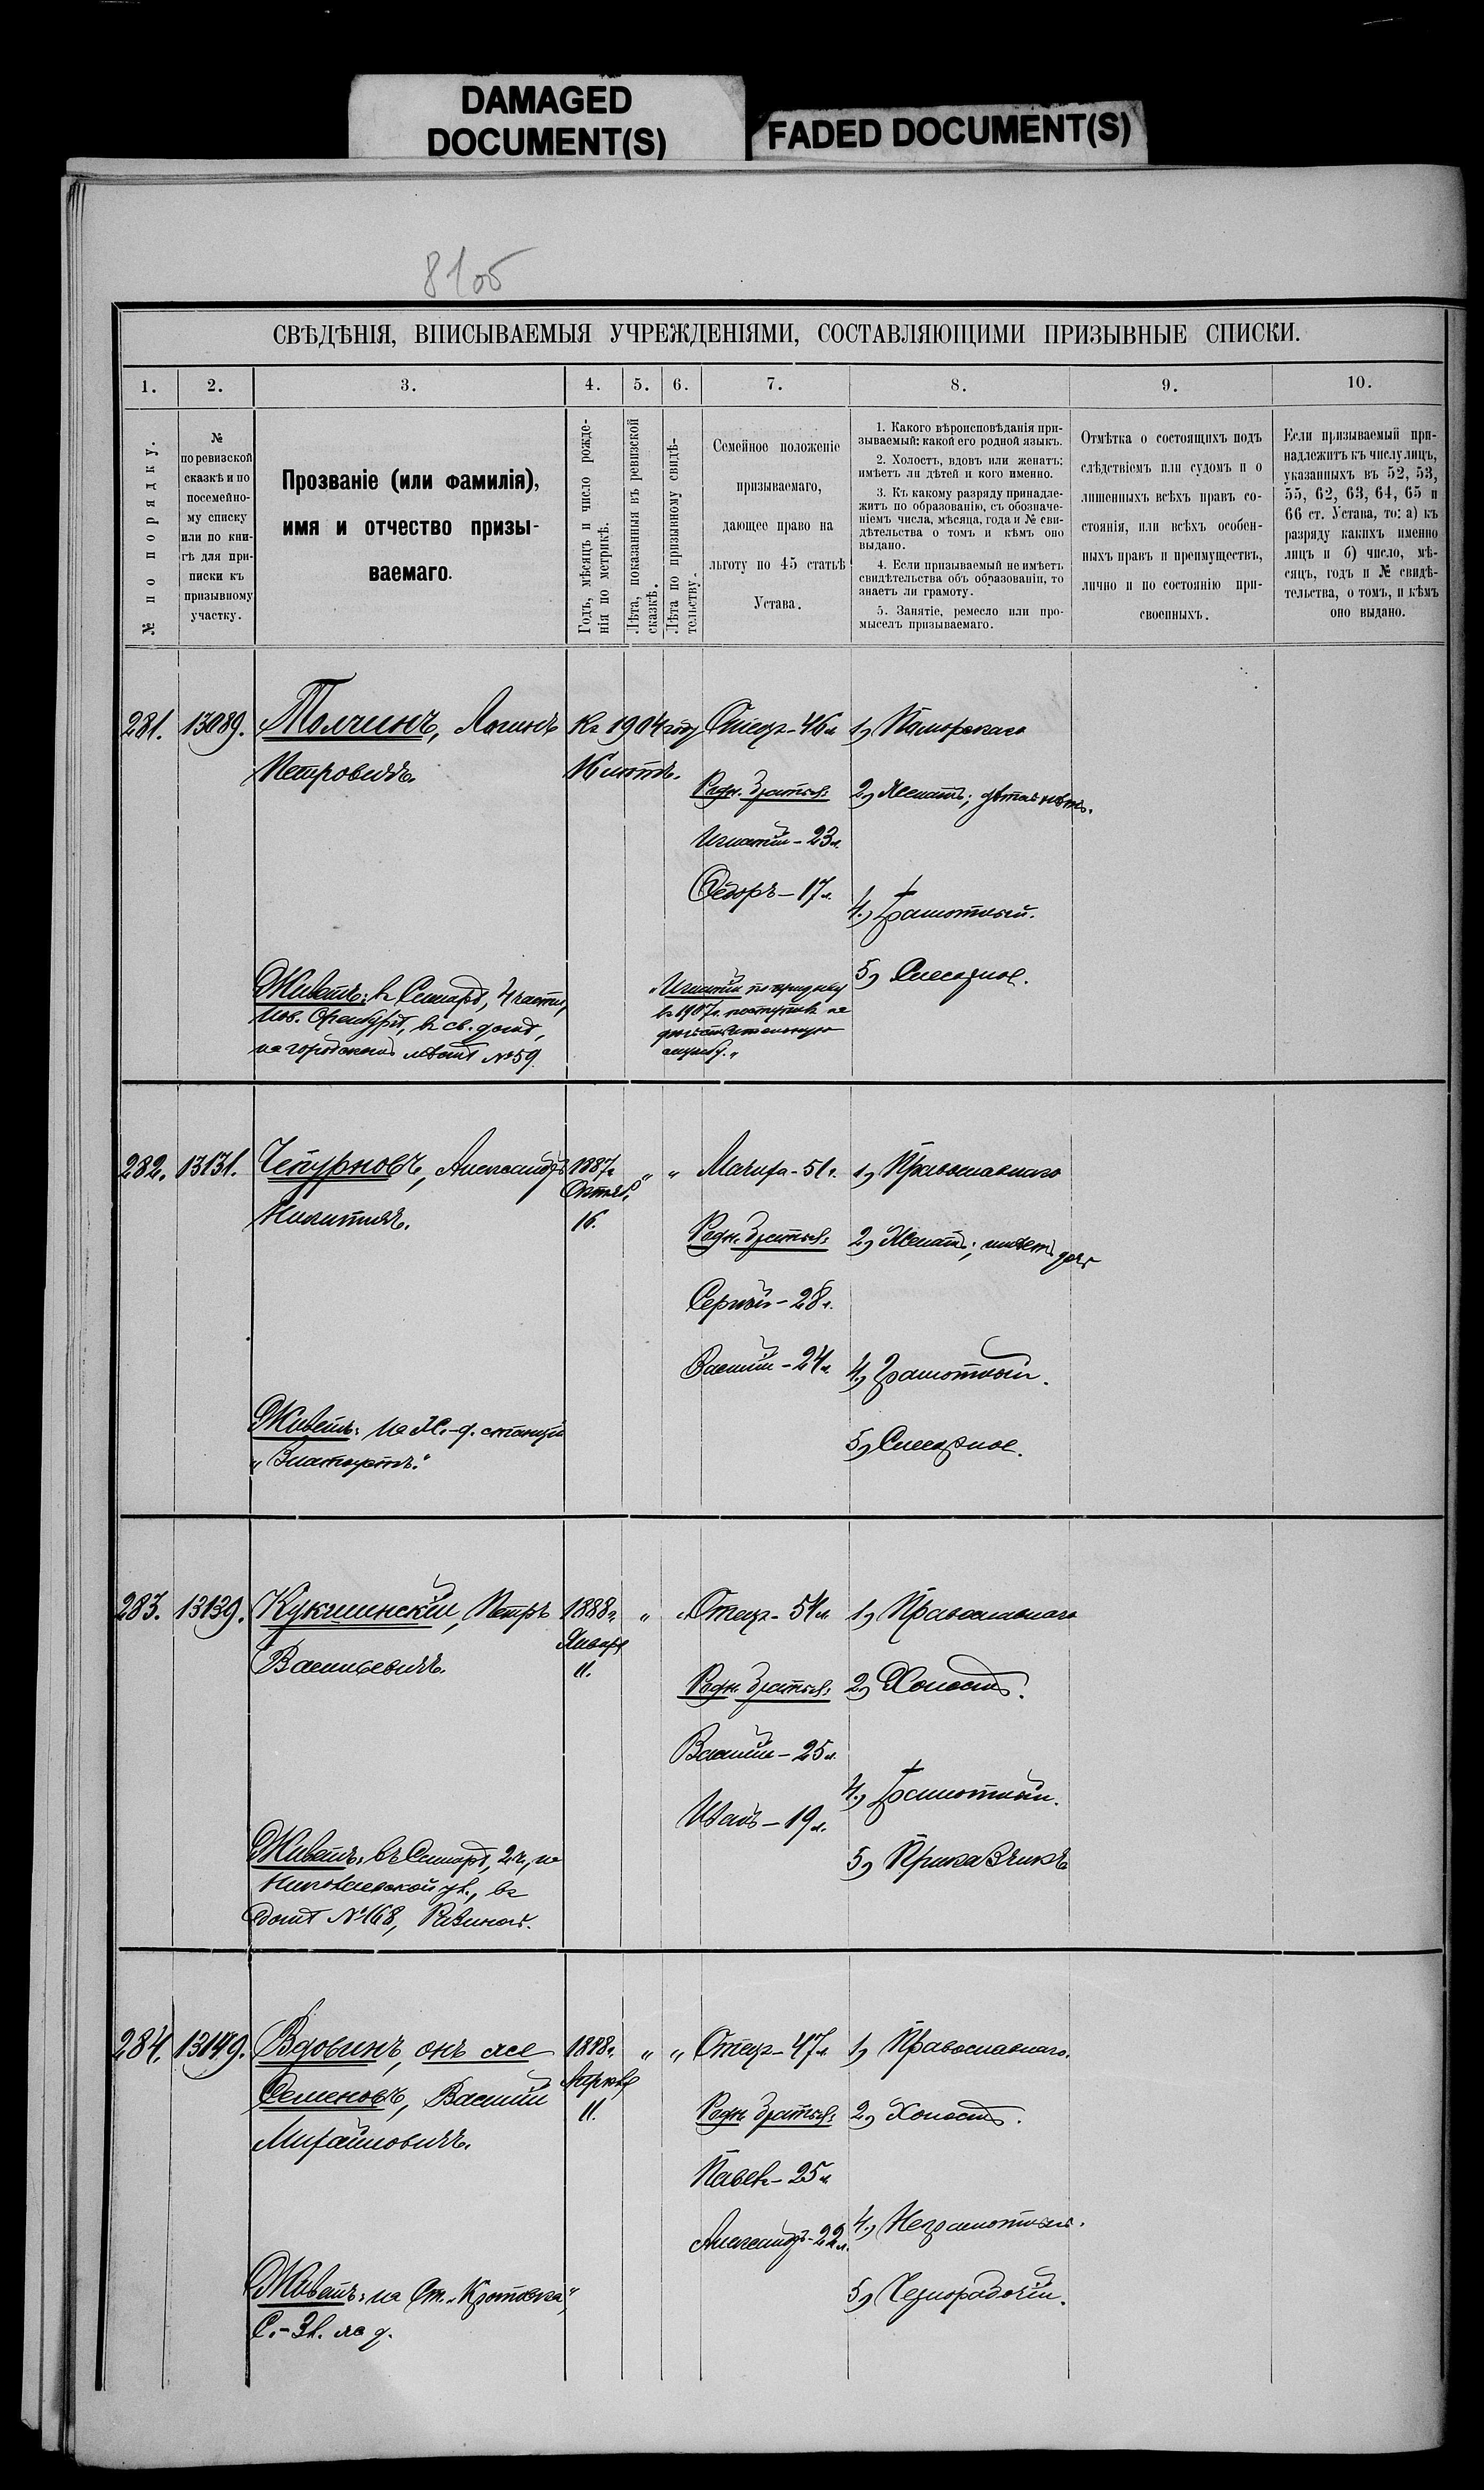 DAMAGED
DOCUMENT(S)
FADED DOCUMENT(S)
81об
СВѢДѢНІЯ, ВПИСЫВАЕМЫЯ УЧРЕЖДЕНІЯМИ, СОСТАВЛЯЮЩИМИ ПРИЗЫВНЫЕ СПИСКИ.
1. 2. 3. 4. 5. 6. 7. 8. 9. 10.
№ по порядку.
№
по ревизской
сказкѣ и по
посемейно-
му списку
или по кни-
гѣ для при-
писки къ
призывному
участку.
Прозваніе (или фамилія),
имя и отчество призы-
ваемаго.
Годъ, мѣсяцъ и число рожде-
нія по метрикѣ.
Лѣта, показанныя въ ревизской
сказкѣ.
Лѣта по призывному свидѣ-
тельству.
Семейное положеніе
призываемаго,
дающее право на
льготу по 45 статьѣ
Устава.
1. Какого вѣроисповѣданія при-
зываемый: какой его родной языкъ.
2. Холостъ, вдовъ или женатъ:
имѣетъ ли дѣтей и кого именно.
3. Къ какому разряду принадле-
житъ по образованію, съ обозначе-
ніемъ числа, мѣсяца, года и № сви-
дѣтельства о томъ и кѣмъ оно
выдано.
4. Если призываемый не имѣетъ
свидѣтельства объ образованіи, то
знаетъ ли грамоту.
5. Занятіе, ремесло или про-
мыселъ призываемаго.
Отмѣтка о состоящихъ подъ
слѣдствіемъ или судомъ и о
лишенныхъ всѣхъ правъ со-
стоянія, или всѣхъ особен-
ныхъ правъ и преимуществъ,
лично и по состоянію при-
своенныхъ.
Если призываемый при-
надлежитъ къ числу лицъ,
указанныхъ въ 52, 53,
55, 62, 63, 64, 65 и
66 ст. Устава, то: а) къ
разряду какихъ именно
лицъ и б) число, мѣ-
сяцъ, годъ и № свидѣ-
тельства, о томъ, и кѣмъ
оно выдано.
281. 13089. Толчинъ, Логинъ
Петровичъ.
Къ 1904 году
16 лѣтъ.
Отецъ - 46 л.
Родн. братья:
Игнатій - 23 л.
Ѳедоръ - 17 л.
"Игнатій по призыву
въ 1907 г. поступилъ на
дѣйствительную
службу."
1) Поморскаго
2) Женатъ; дѣтей нѣтъ.
4) Грамотный.
5) Слесарное.
Живетъ: въ Самарѣ, 4 части,
Нов. Оренбургѣ, въ св. домѣ,
на городскомъ мѣстѣ №59.
282. 13131. Чепурновъ, Александръ
Никитичъ.
1887 г.
Октяб.
16.
" "
Мачиха - 51 г.
Родн. братья:
Сергѣй - 28 л.
Василій - 24 л.
1) Православнаго
2) Женатъ; имѣетъ дочь
4) Грамотный.
5) Слесарное.
Живетъ: На Ж.-д. станціи
"Златоустъ".
283. 13139. Кукшинскій, Петръ
Васильевичъ.
1888 г.
Января
11.
" "
Отецъ - 51 г.
Родн. братья:
Василій - 25 л.
Иванъ - 19 л.
1) Православнаго
2) Холостъ.
4) Грамотный.
5) Приказчикъ
Живетъ: въ Самарѣ, 2 ч., на
Николаевской ул., въ
домѣ №168,
284. 13149. Вдовинъ, онъ же
Семеновъ, Василій
Михайловичъ.
1888 г.
Апрѣля
11.
" "
Отецъ - 47 л.
Родн. братья:
Павелъ - 25 л.
Александръ - 22 л.
1) Православнаго.
2) Холостъ.
4) Неграмотный.
5) Чернорабочій.
Живетъ: на Ст. "Кротовка",
С.-Зл. ж. д.